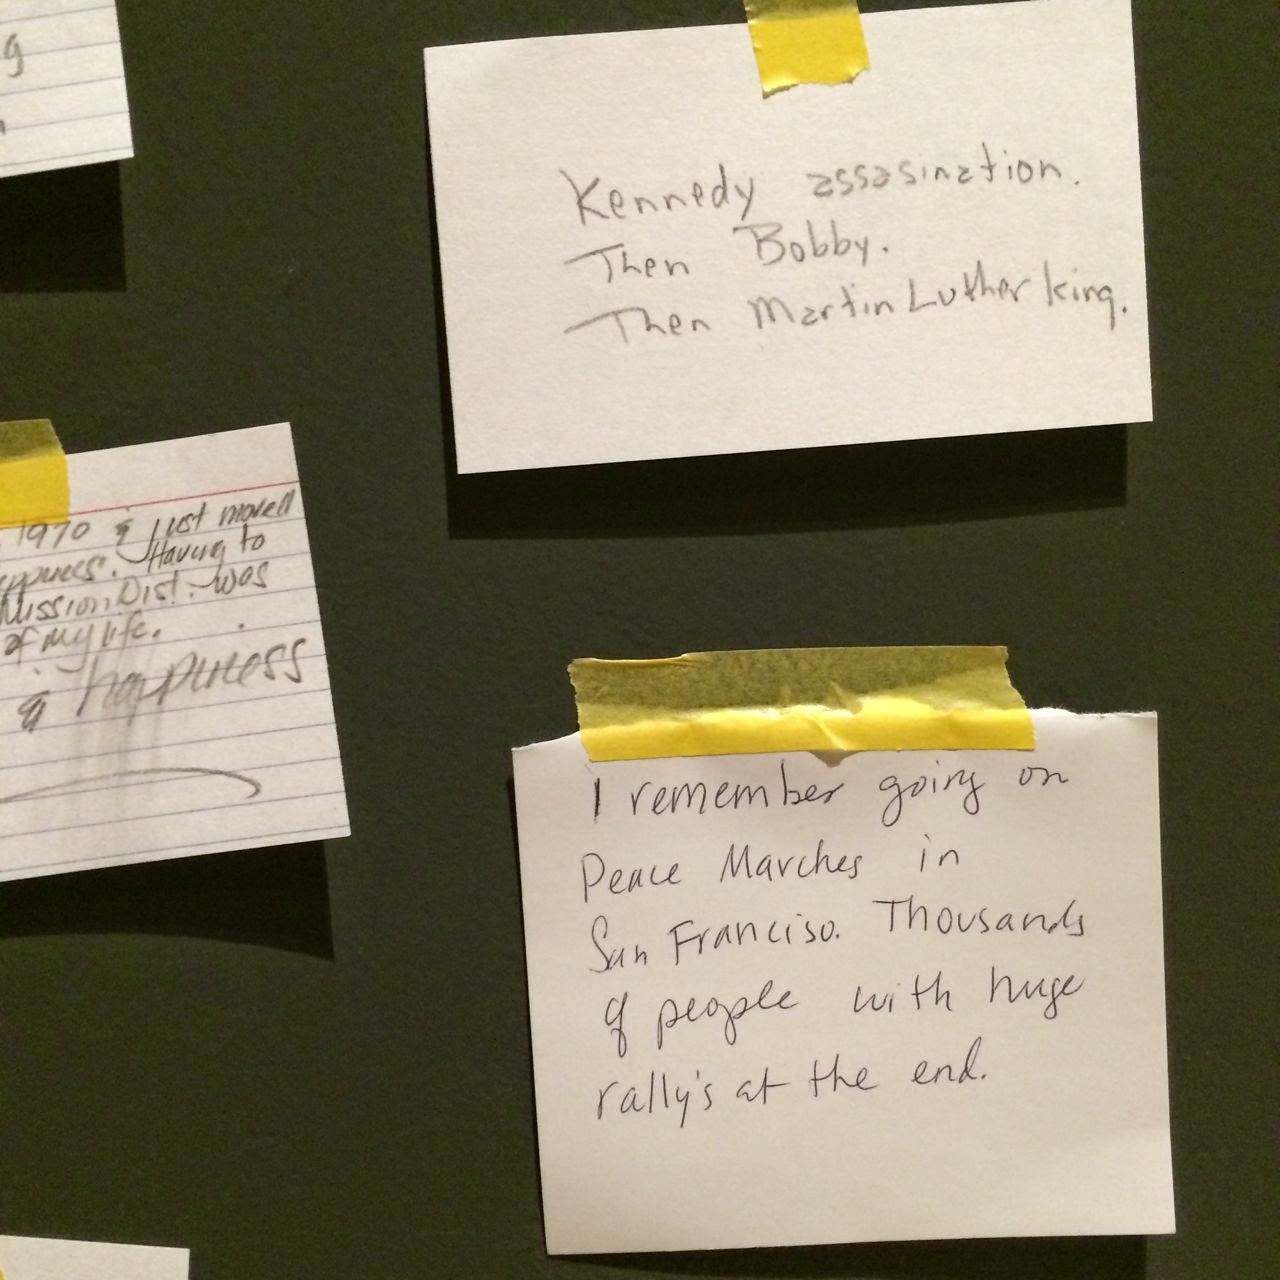 g
Kennedy assasination.
Then Bobby.
Then Martin Luther King.
1970 & I just moved
Having to
Mission Dist. was
of my life.
& happiness
I remember going on
Peace Marches in
San Franciso. Thousands
of people with huge
rally's at the end.